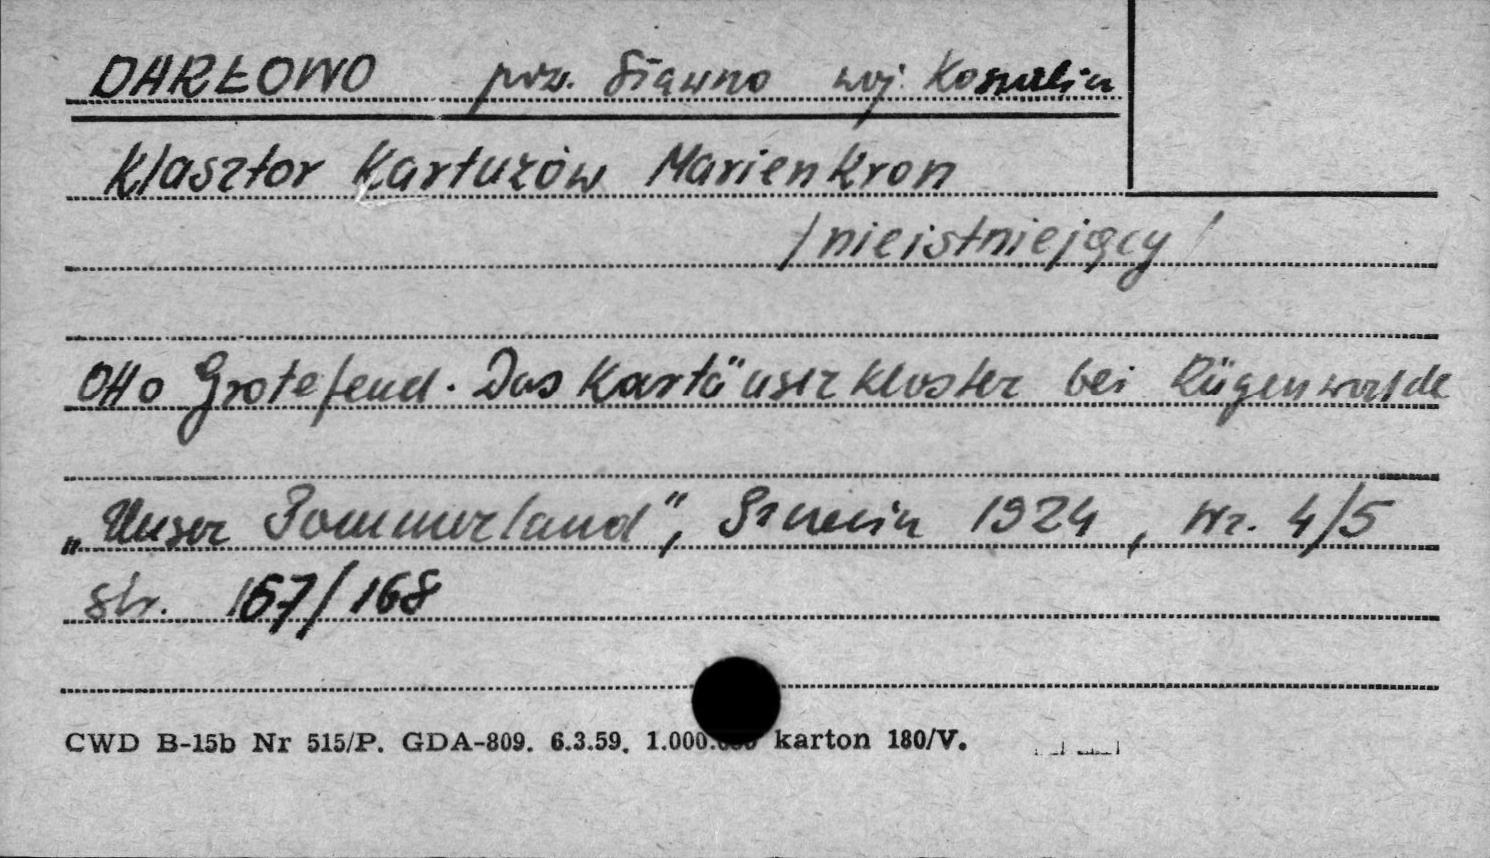 DARŁOWO pow. Sławno woj. Koszalin
Klasztor Kartuzów Marienkron
/nieistniejący/
Otto Grotefend. Das Kartäuserkloster bei Rügenwalde
„Unser Pommerland”, Szczecin 1924, Nr. 4/5
str. 167/168
CWD B-15b Nr 515/P. GDA-809. 6.3.59. 1.000.000 karton 180/V.